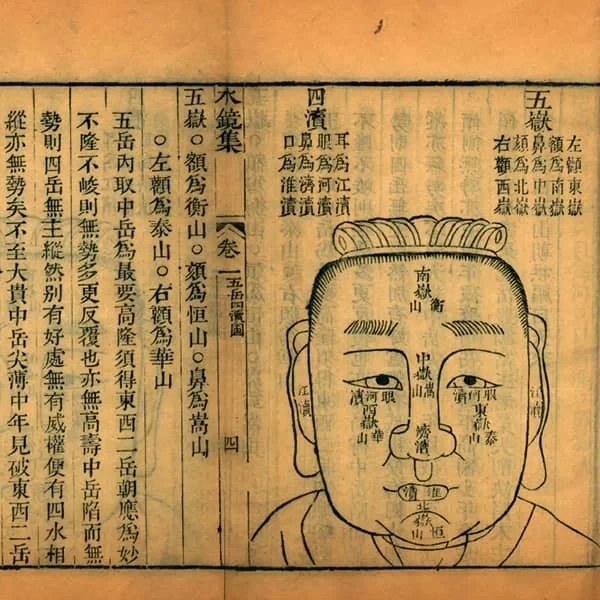 五嶽
左顴東嶽
額爲南嶽
鼻爲中嶽
頦爲北嶽
右顴西嶽
四瀆
耳爲江瀆
眼爲河瀆
鼻爲濟瀆
口爲淮瀆
南嶽衡山
中嶽嵩山
眼河瀆
東嶽泰山
眼河瀆
西嶽華山
江瀆
江瀆
濟瀆
淮瀆
北嶽恒山
水鏡集
卷一
五岳四瀆圖
四
五嶽○額爲衡山○頦爲恒山○鼻爲嵩山
○左顴爲泰山○右顴爲華山
五岳內取中岳爲最要高隆須得東西二岳朝應爲妙
不隆不峻則無勢多更反覆也亦無高壽中岳陷而無
勢則四岳無主縱然別有好處無有威權便有四水相
縱亦無勢矣不至大貴中岳尖薄中年見破東西二岳